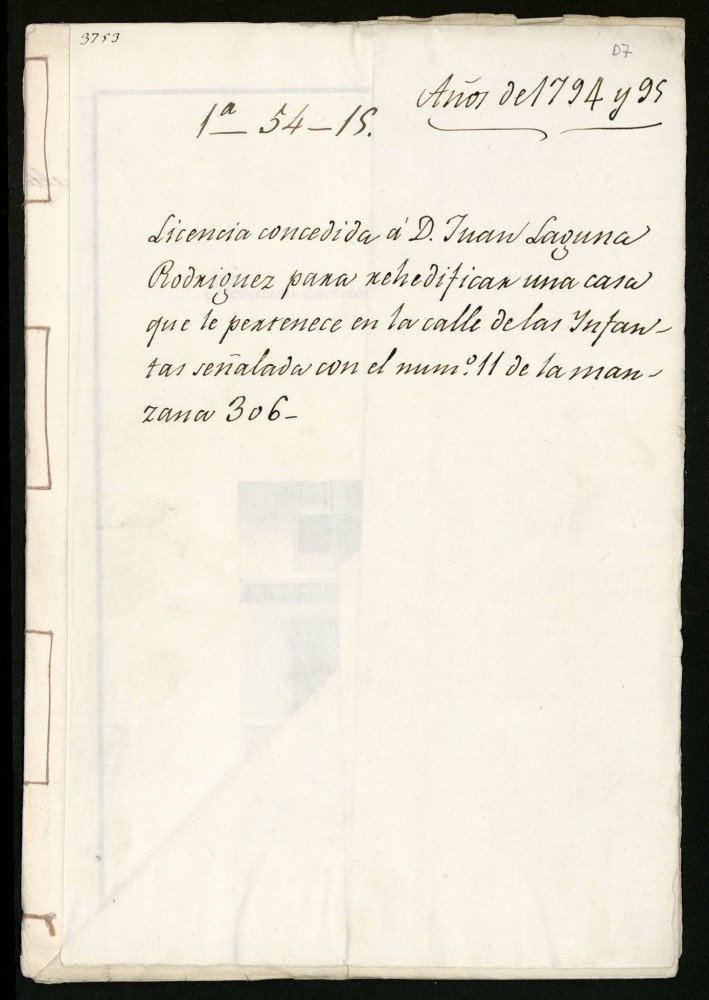 3753
D7
Años de 1794 y 95
1ª 54-15.
Licencia concedida á D. Juan Laguna
Rodriguez para rehedificar una casa
que le pertenece en la calle de las Ynfan-
tas señalada con el numº. 11 de la man-
zana 306-